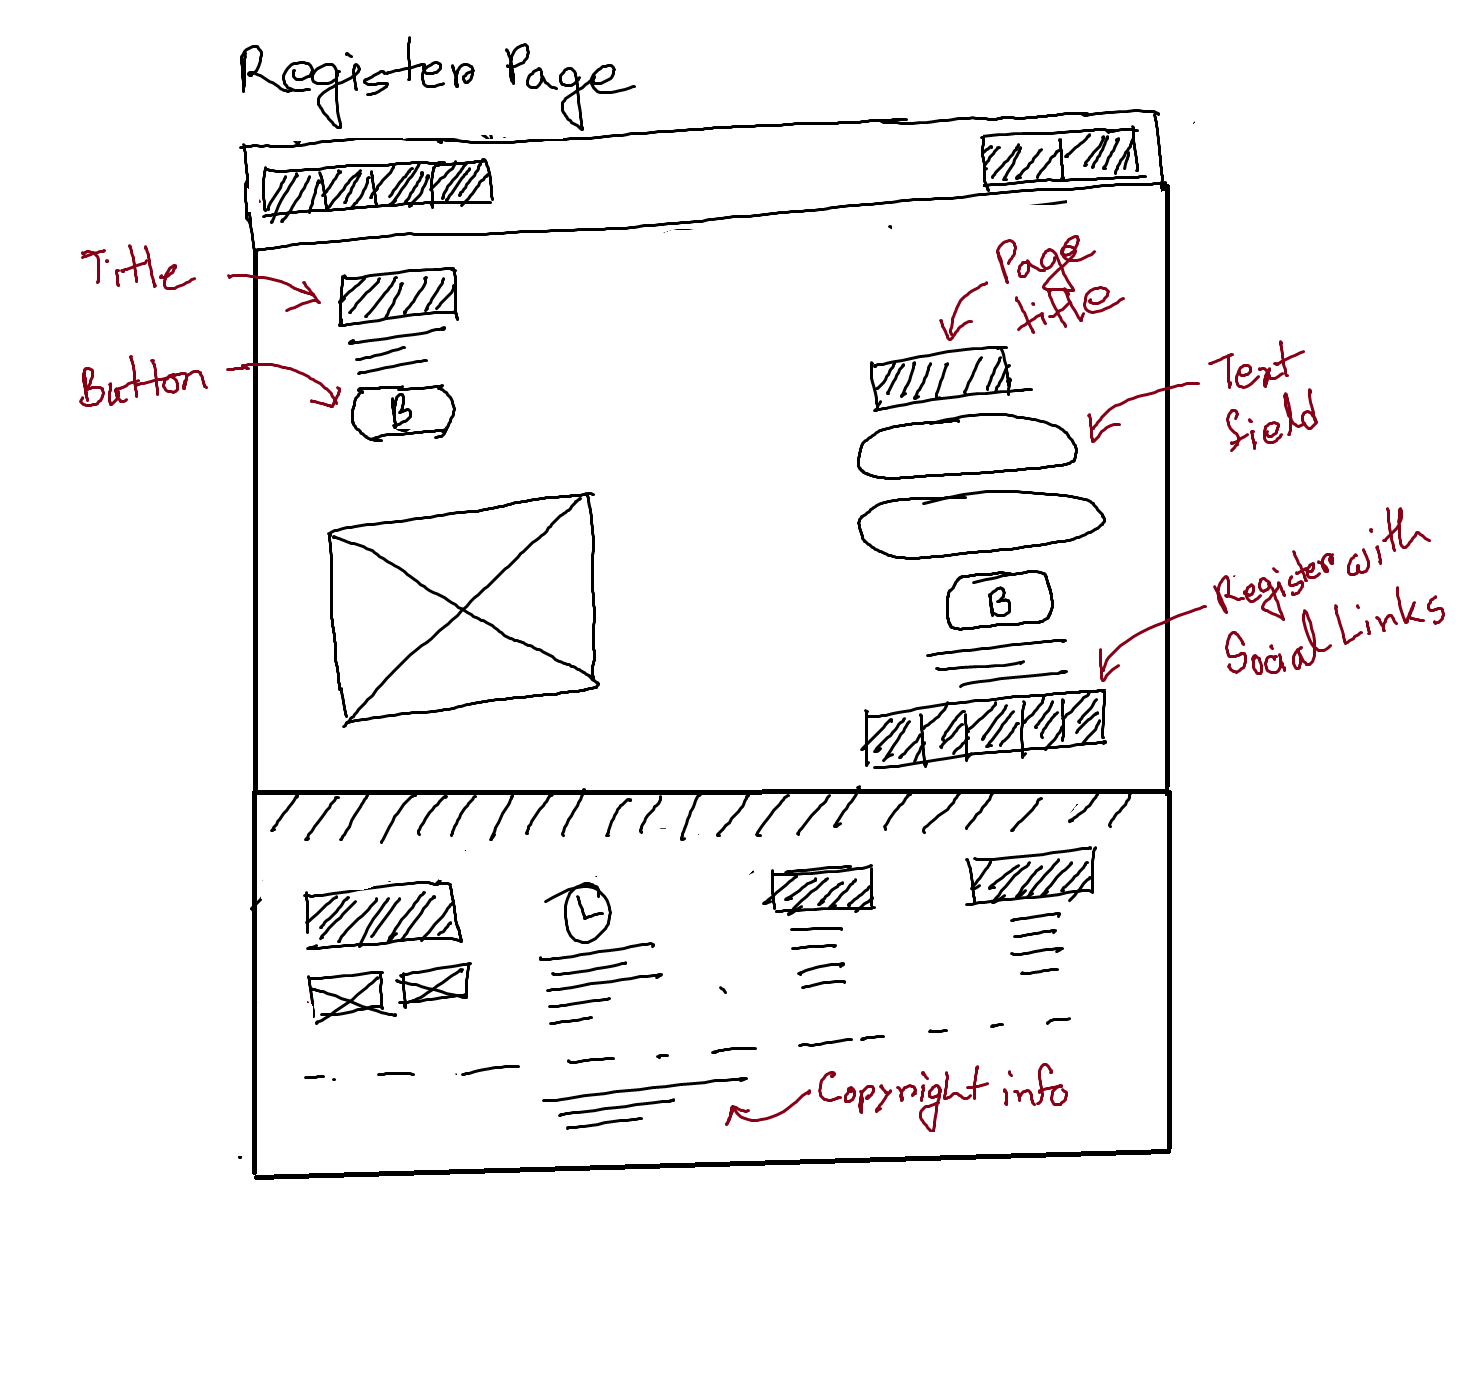 Register Page
Title
Page
title
Button
B
Text
field
B
Register with
Social Links
Copyright info